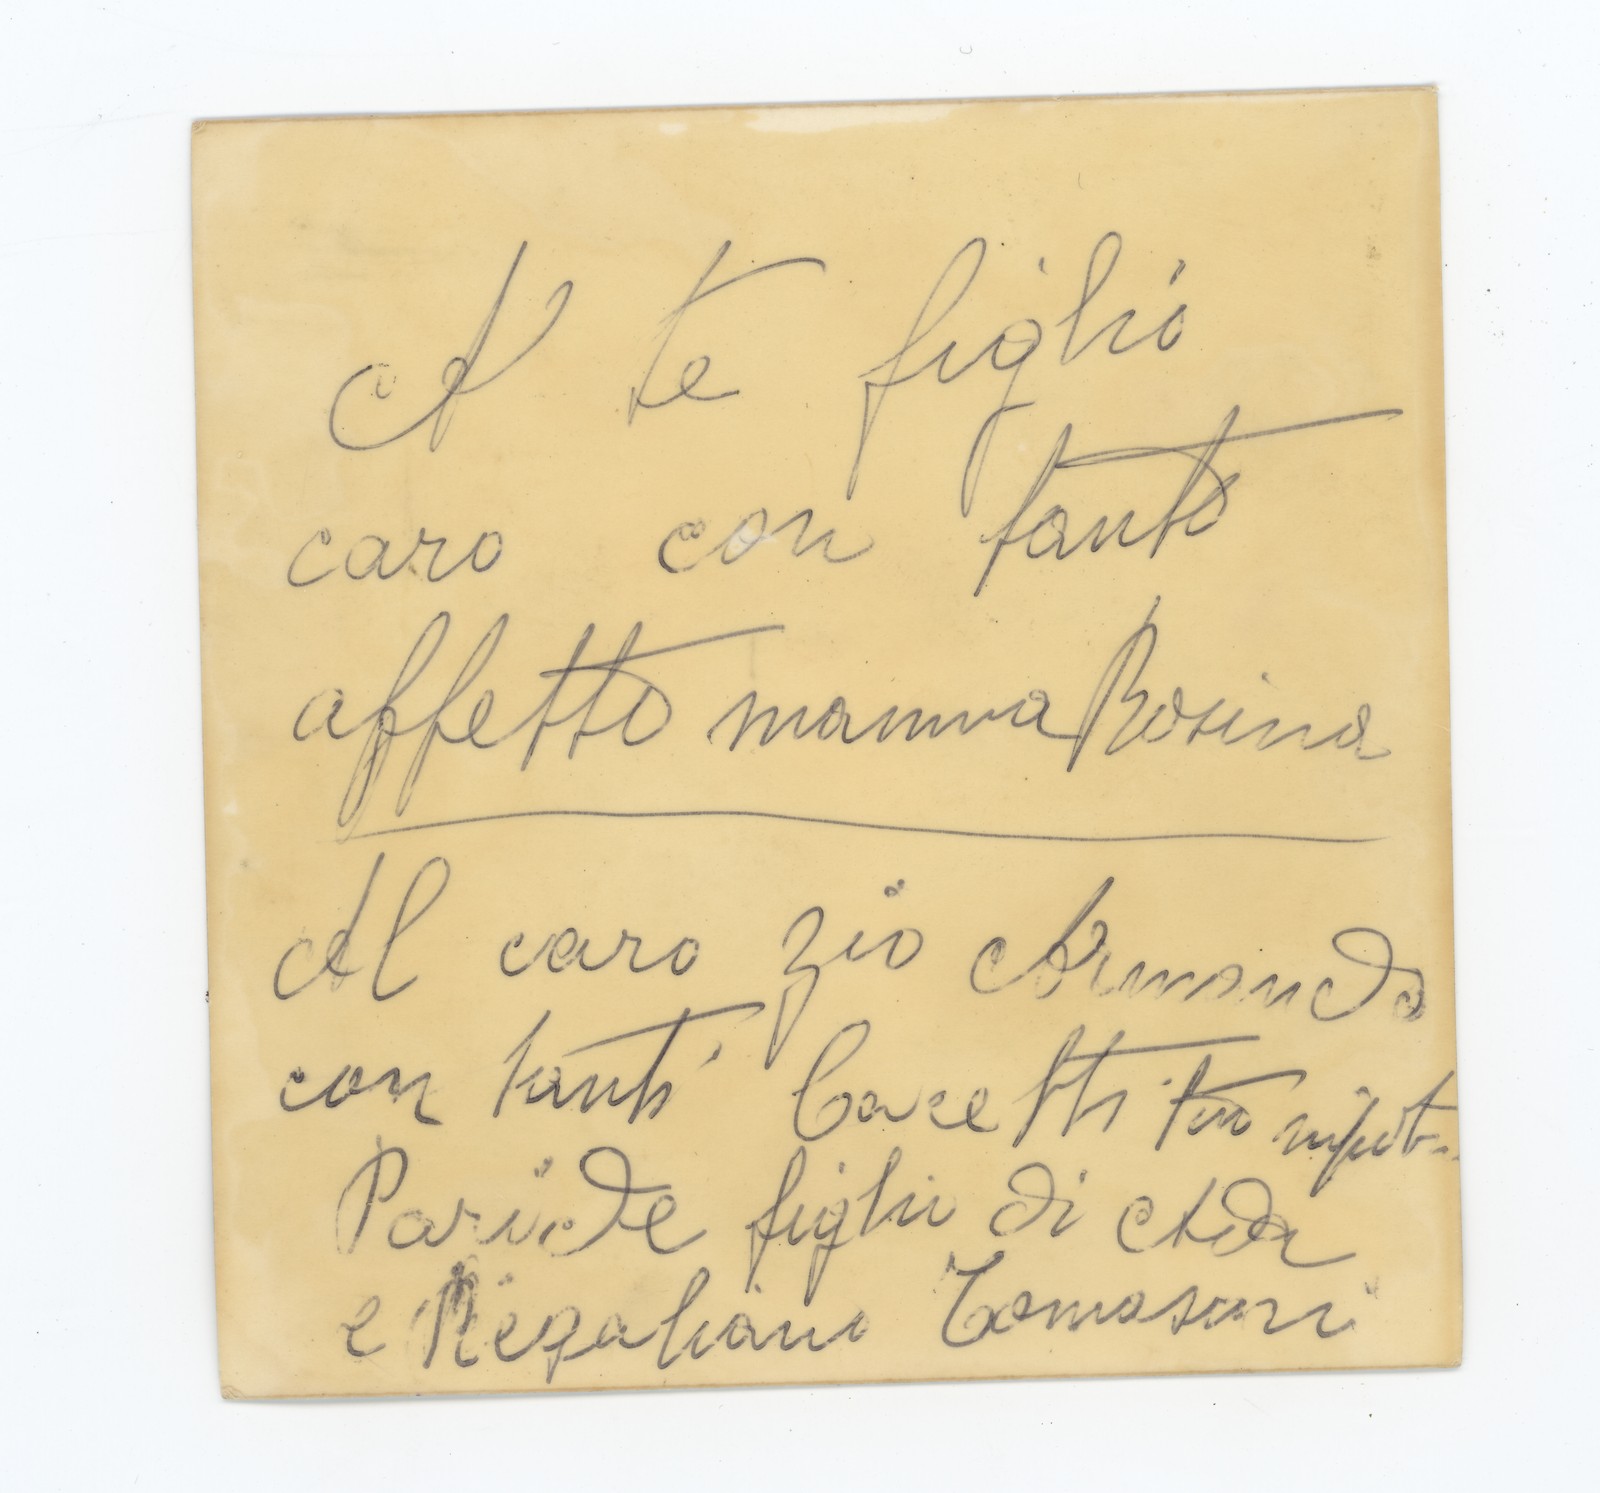 A te figlio
caro con tanto
affetto mamma Rosina
Al caro zio Armando
con tanti bacetti tuo nipot..
Paride figlio di Ada
e Regaliano Tomasini